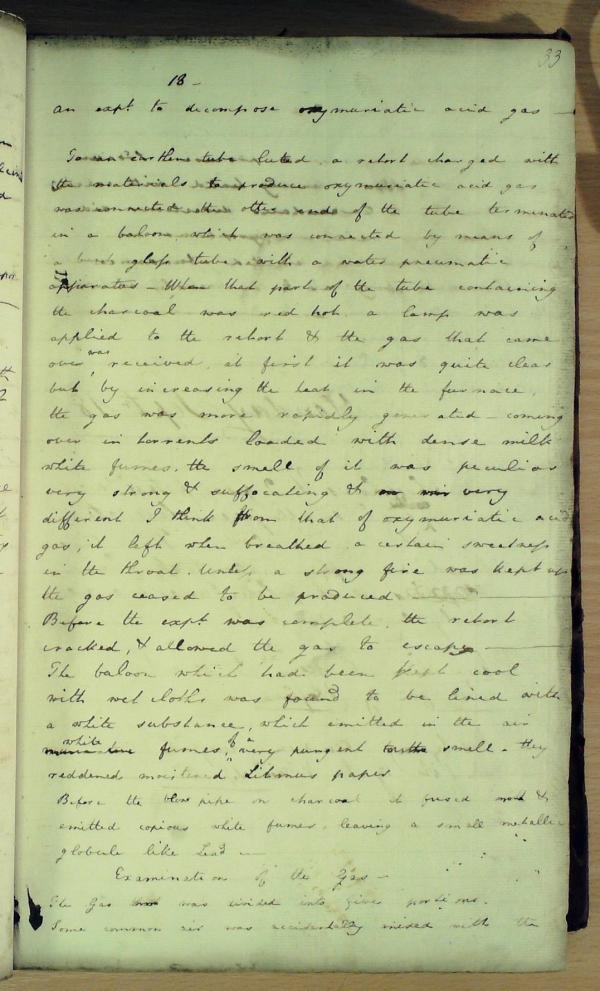 33
18 -
an expt. to decompose oxymuriatic acid gas -
To an earthen tube luted a retort charged with
the materials to produce oxymuriatic acid gas
was connected the other end of the tube terminated
in a baloon which was connected by means of
a glass tube with a water pneumatic
apparatus - When that part of the tube containing
the charcoal was red hot a lamp was
applied to the retort & the gas that came
over was received, at first it was quite clear
but by increasing the heat in the furnace,
the gas was more rapidly generated - coming
over in torrents loaded with dense milk
white fumes. the smell of it was peculiar
very strong & suffocating & very
different I think from that of oxymuriatic acid
gas, it left when breathed a certain sweetness
in the throat. Unless a strong fire was kept up
the gas ceased to be produced
Before the expt. was complete, the retort
cracked, & allowed the gas to escape -
The baloon which had been kept cool
with wet cloths was found to be lined with
a white substance, which emitted in the air
white fumes of a very pungent smell - they
reddened moistened Litmus paper
Before the blow pipe on charcoal it fused &
emitted copious white fumes, leaving a small metallic
globule like Lead -
Examination of the Gas -
The Gas was divided into five portions.
Some common air was accidentally mixed with the